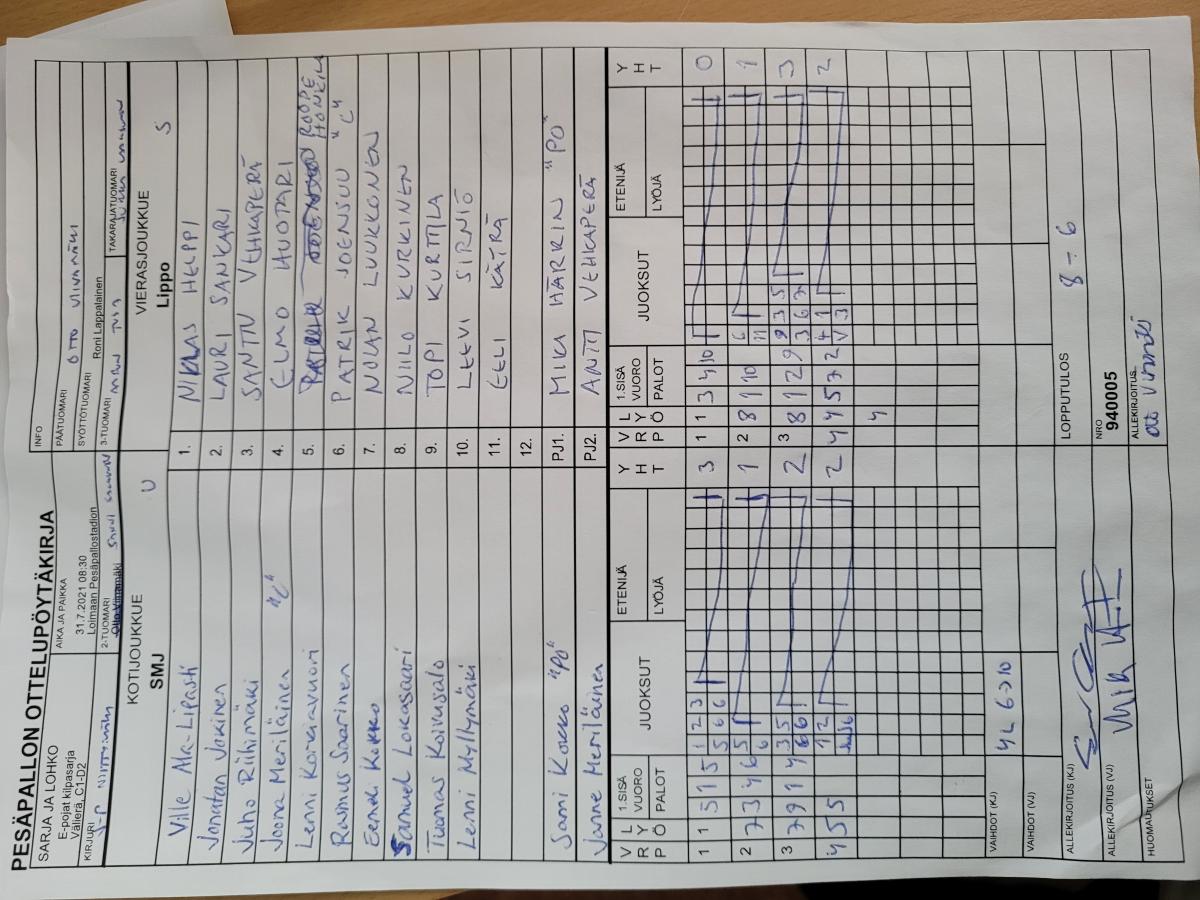 PESÄPALLON OTTELUPÖYTÄKIRJA
SARJA JA LOHKO
E-pojat kilpasarja
Välierä, C1-D2
AIKA JA PAIKKA
31.7.2021 08:30
Loimaan Pesäpallostadion
INFO
PÄÄTUOMARI
OTTO VIINAMÄKI
SYÖTTÖTUOMARI
Roni Lappalainen
KIRJURI
2-TUOMARI
Otto Viinamäki
3-TUOMARI
TAKARAJATUOMARI
KOTIJOUKKUE
SMJ
U
VIERASJOUKKUE
Lippo
S
Ville Ala-Lipasti 1. NIKLAS HELPPI
Jonatan Jokinen 2. LAURI SANKARI
Juho Riihimäki 3. SANTTU VEHKAPERÄ
Joona Meriläinen "C" 4. ELMO HUOTARI
Lenni Koreavuori 5. ROOPE
Rasmus Saarinen 6. PATRIK JOENSUU "C"
Eemeli Kokko 7. NOOAN LUUKKONEN
Samuel Lokasaari 8. NIILO KURKINEN
Tuomas Koivusalo 9. TOPI KURTTILA
Lenni Myllymäki 10. LEEVI SIRNIÖ
11. EELI KÄTRÄ
12.
Sami Kokko "PO" PJ1. MIKA HÄRKIN "PO"
Janne Meriläinen PJ2. ANTTI VEHKAPERÄ
V R P L Y Ö 1.SISÄ VUORO PALOT JUOKSUT ETENIJÄ LYÖJÄ Y H T V R P L Y Ö 1.SISÄ VUORO PALOT JUOKSUT ETENIJÄ LYÖJÄ Y H T
1 1 3 1 5 1 2 3 3 1 1 3 4 10 0
5 6 6
2 7 3 4 6 5 1 2 8 1 10 6 1
6 11
3 7 9 1 4 3 5 2 3 8 1 2 9 9 3 5 3
6 6 3 6 7
4 5 5 1 2 2 4 4 5 7 2 4 1 2
V 3
4
VAIHDOT (KJ)
4L 6→10
VAIHDOT (VJ)
ALLEKIRJOITUS (KJ)
LOPPUTULOS
8 - 6
ALLEKIRJOITUS (VJ)
NRO
940005
ALLEKIRJOITUS
Otto Viinamäki
HUOMAUTUKSET